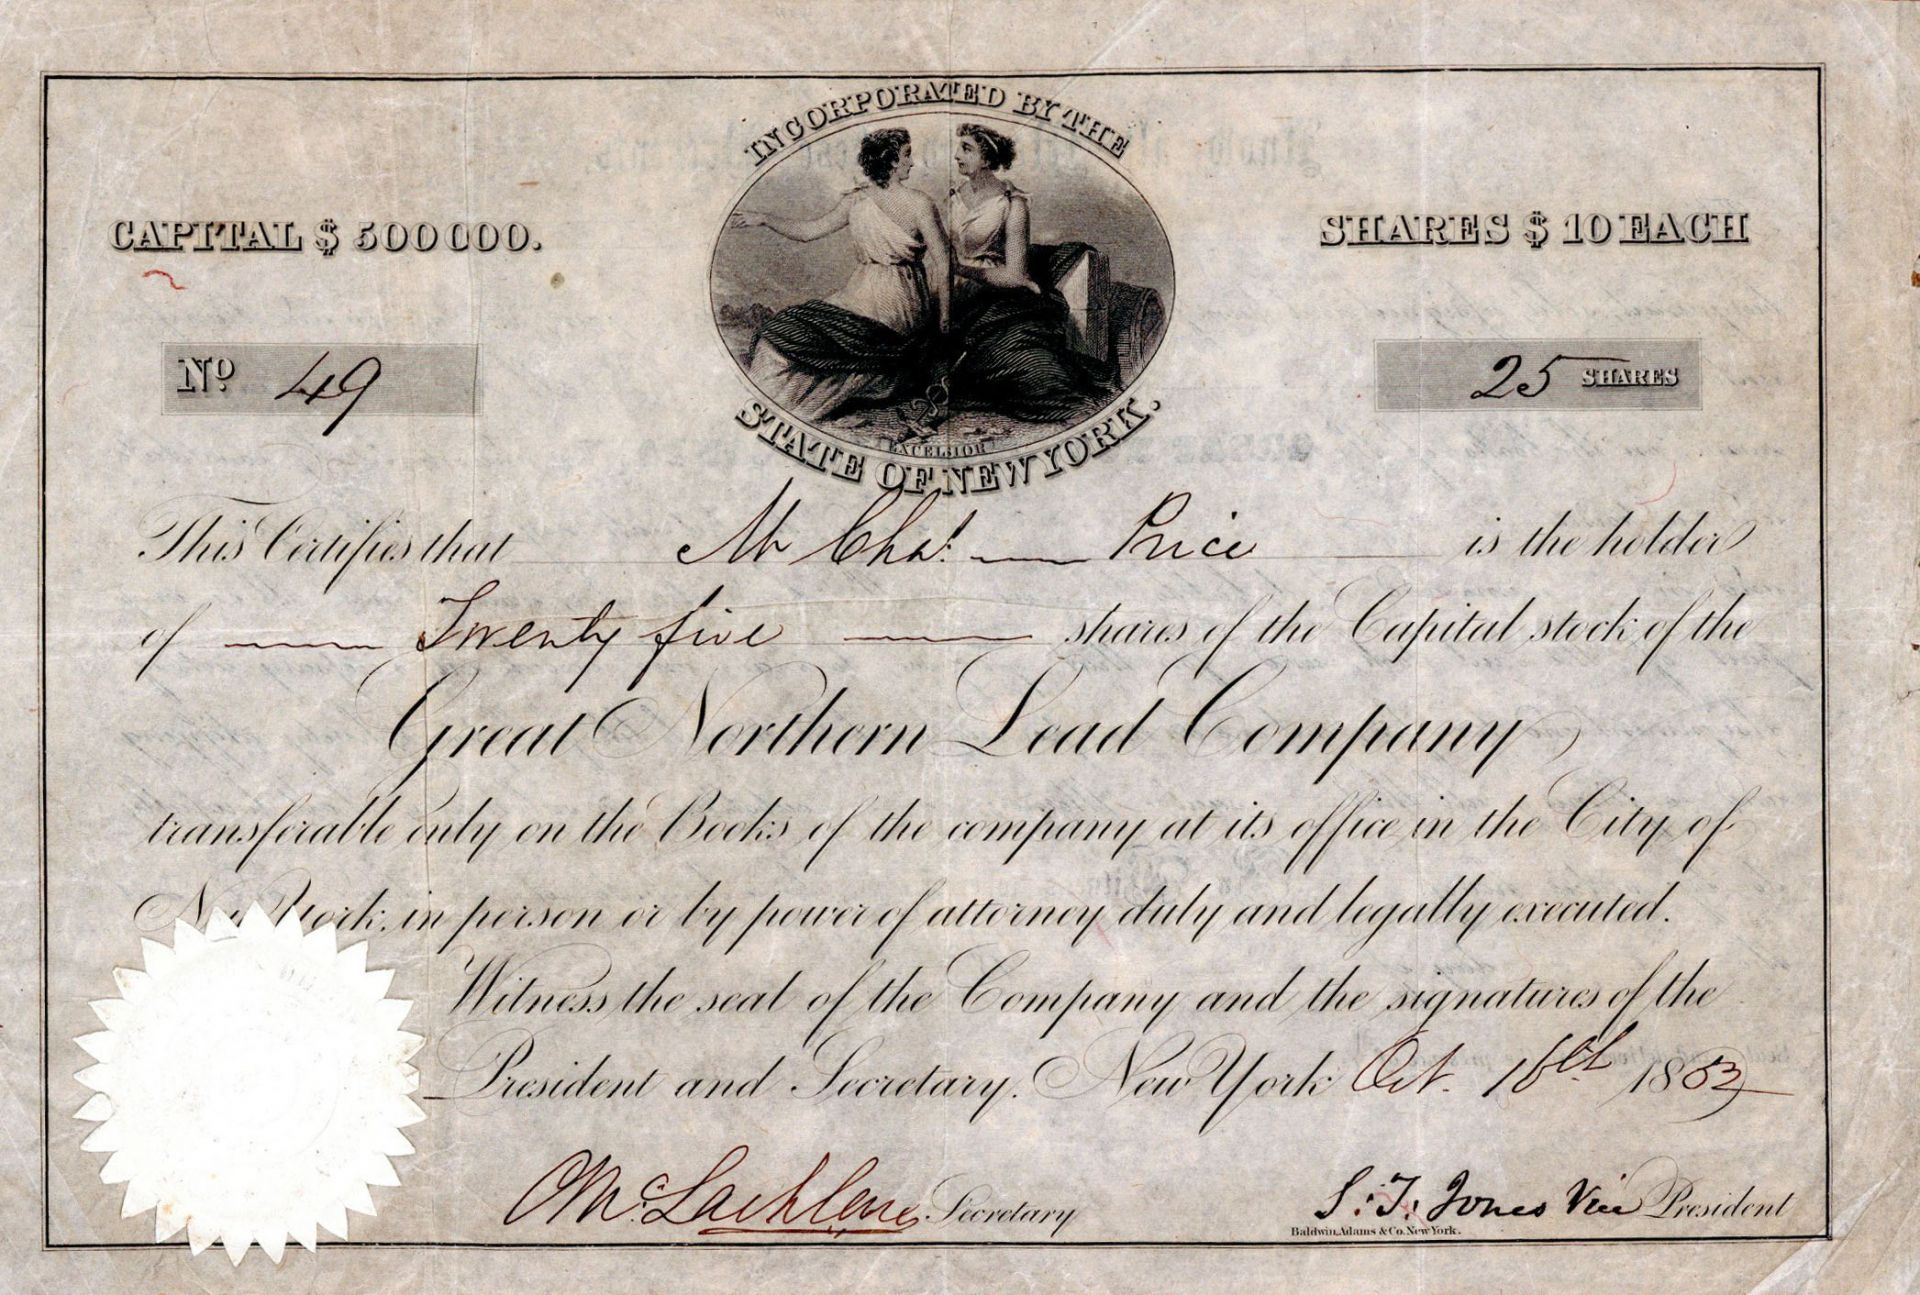 INCORPORATED BY THE
CAPITAL $ 500000.
SHARES $ 10 EACH
No 49
25 SHARES
EXCELSIOR
STATE OF NEW YORK.
This Certifies that Mr Chas. Price is the holder
of Twenty five shares of the Capital stock of the
Great Northern Lead Company
transferable only on the Books of the company at its office in the City of
New York, in person or by power of attorney duly and legally executed.
Witness the seal of the Company and the signatures of the
President and Secretary. New York Oct. 16th 1853
Secretary
S. T. Jones Vice President
Baldwin, Adams & Co. New York.